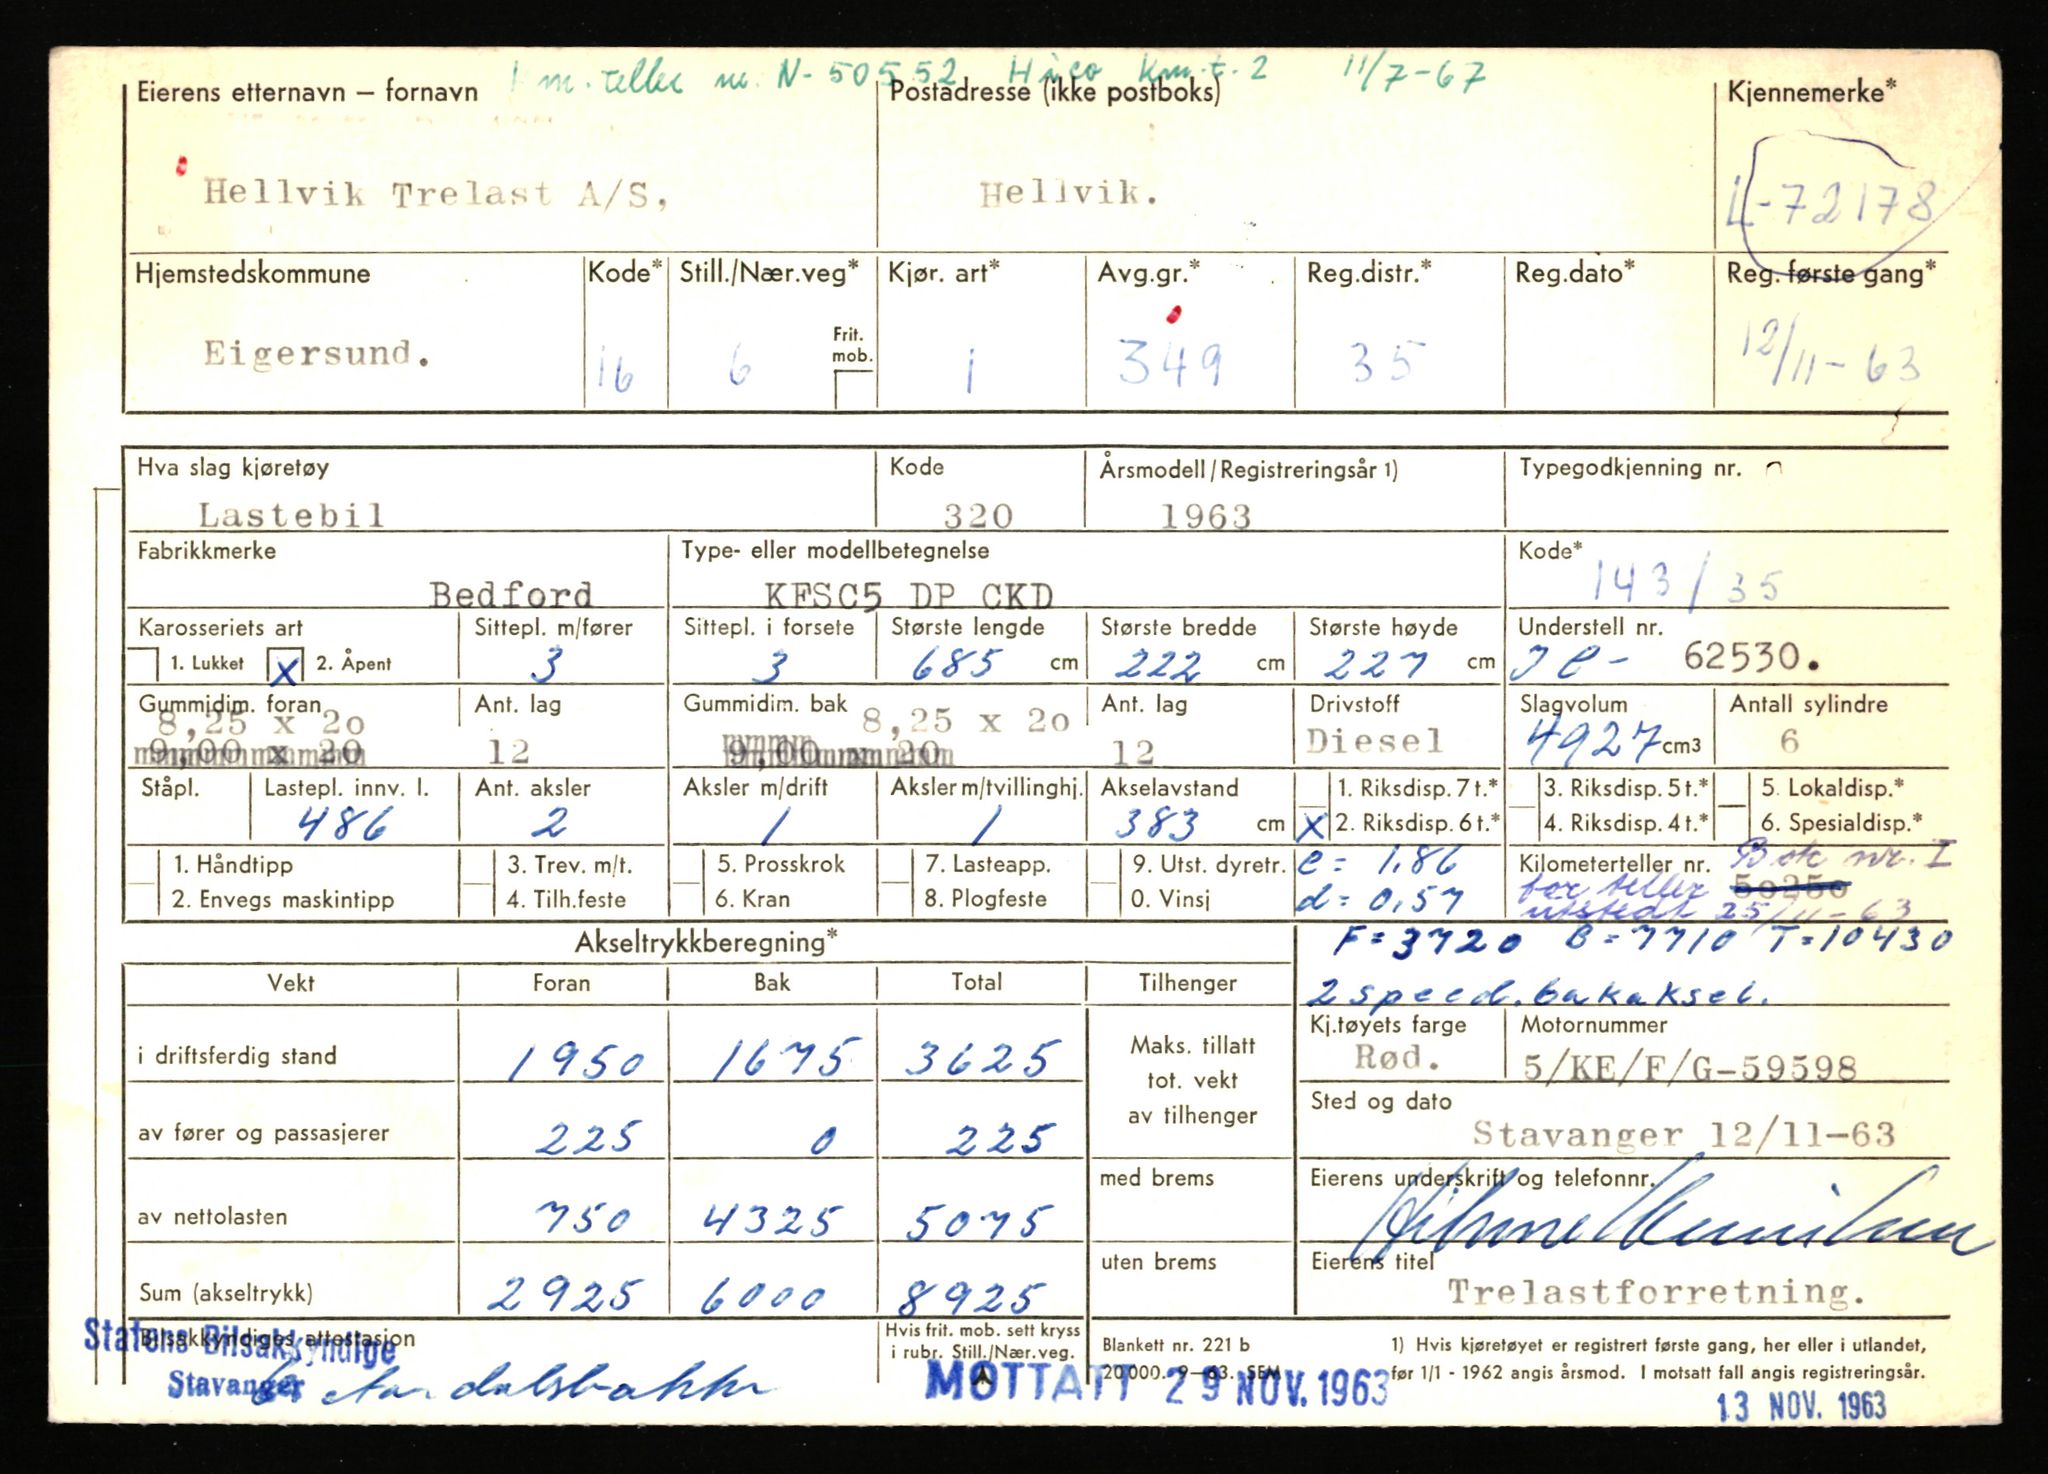 Km. teller nr. N-50552 Hico Km.t. 2 11/7-67
Eierens etternavn – fornavn Postadresse (ikke postboks) Kjennemerke*
Hellvik Trelast A/S, Hellvik. L-72178
Hjemstedskommune Kode* Still./Nær.veg* Kjør. art* Avg.gr.* Reg.distr.* Reg.dato* Reg. første gang*
Frit. mob.
Eigersund. 16 6 1 349 35 12/11-63
Hva slag kjøretøy Kode Årsmodell/Registreringsår 1) Typegodkjenning nr.
Lastebil 320 1963
Fabrikkmerke Type- eller modellbetegnelse Kode*
Bedford KFSC5 DP CKD 143/35
Karosseriets art Sittepl. m/fører Sittepl. i forsete Største lengde Største bredde Største høyde Understell nr.
1. Lukket X 2. Åpent 3 3 685 cm 222 cm 227 cm JC- 62530.
Gummidim. foran Ant. lag Gummidim. bak Ant. lag Drivstoff Slagvolum Antall sylindre
8,25 x 2o 8,25 x 2o
9,00 x 20 12 9,00 x 20 12 Diesel 4927 cm3 6
Ståpl. Lastepl. innv. l. Ant. aksler Aksler m/drift Aksler m/tvillinghj. Akselavstand 1. Riksdisp. 7 t.* 3. Riksdisp. 5 t.* 5. Lokaldisp.*
486 2 1 1 383 cm X 2. Riksdisp. 6 t.* 4. Riksdisp. 4 t.* 6. Spesialdisp.*
1. Håndtipp 3. Trev. m/t. 5. Prosskrok 7. Lasteapp. 9. Utst. dyretr. e = 1,86 Kilometerteller nr. Bok nr. I
2. Envegs maskintipp 4. Tilh.feste 6. Kran 8. Plogfeste 0. Vinsj d = 0,57 for teller 50250
utstedt 25/11-63
Akseltrykkberegning* F = 3720 B = 7710 T = 10430
Vekt Foran Bak Total Tilhenger 2 speed. bakaksel.
Kj.tøyets farge Motornummer
i driftsferdig stand 1950 1675 3625 Maks. tillatt tot. vekt av tilhenger Rød. 5/KE/F/G-59598
Sted og dato
av fører og passasjerer 225 0 225 Stavanger 12/11-63
med brems Eierens underskrift og telefonnr.
av nettolasten 750 4325 5075
uten brems Eierens titel
Sum (akseltrykk) 2925 6000 8925 Trelastforretning.
Statens Bilsakkyndige
Bilsakkyndiges attestasjon Hvis frit. mob. sett kryss Blankett nr. 221 b 1) Hvis kjøretøyet er registrert første gang, her eller i utlandet,
i rubr. Still./Nær.veg. 20.000. 9–63. SEM før 1/1 - 1962 angis årsmod. I motsatt fall angis registreringsår.
Stavanger MOTTATT 29 NOV. 1963
13 NOV. 1963